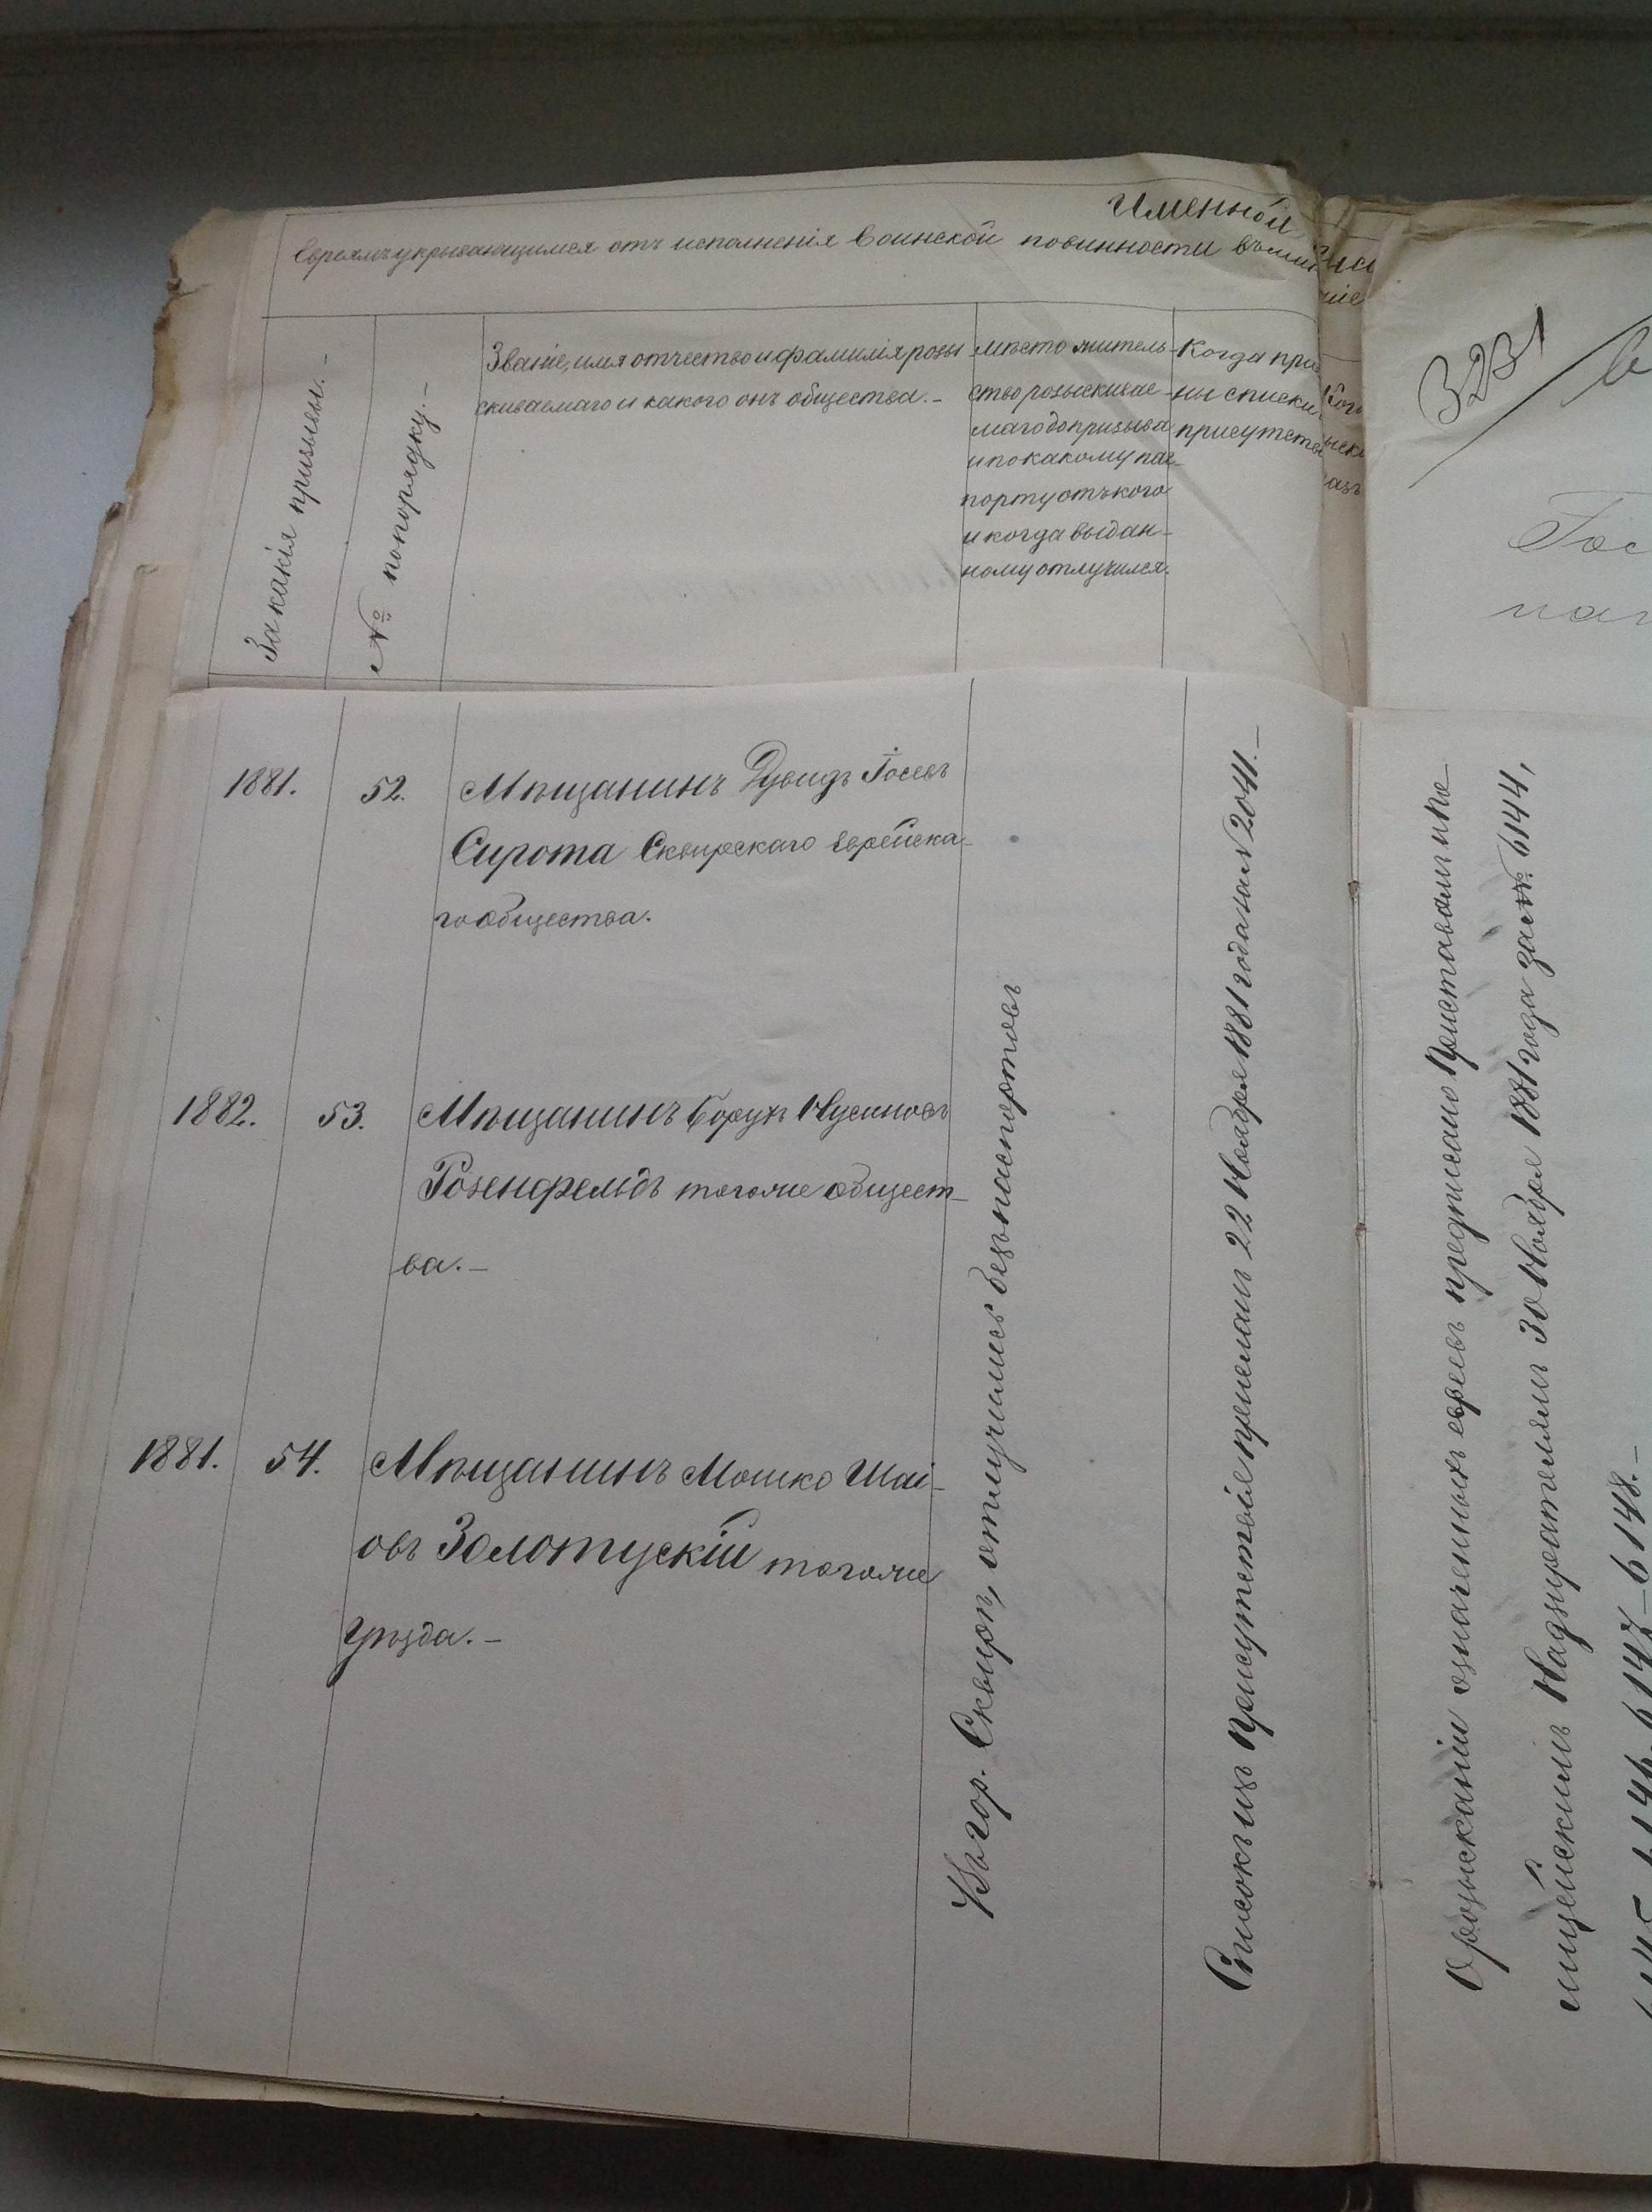 Именной
евреямъ укрывающимся отъ исполненія воинской повинности
За какія призывы. –
№ по порядку. –
Званіе, имя отчество и фамилія розы
скиваемаго и какого онъ общества. –
мѣсто житель-
ство розыскивае-
маго до призыва
и по какому пас-
порту отъ кого
и когда выдан-
ному отлучился.
Когда при
ны списки
присутств
1881.
52.
Мѣщанинъ Дувидъ Іосевъ
Сирота Сквирскаго Еврейска-
го общества.
1882.
53.
Мѣщанинъ Борух Нусиновъ
Розенфельдъ тогоже общест-
ва. –
1881.
54.
Мѣщанинъ Мошко Шаі-
овъ Золотускій тогоже
уѣзда. –
Въ гор. Сквирѣ, отлучились безъ паспортовъ
Списокъ изъ присутствія присланъ 22 Ноября 1881 года за № 2041. –
3231
Гос
О розысканіи означенныхъ евреевъ предписано Приставамъ и По-
лицейскимъ Надзирателямъ 30 Ноября 1881 года за № 6144,
6146, 6147, 6148. –